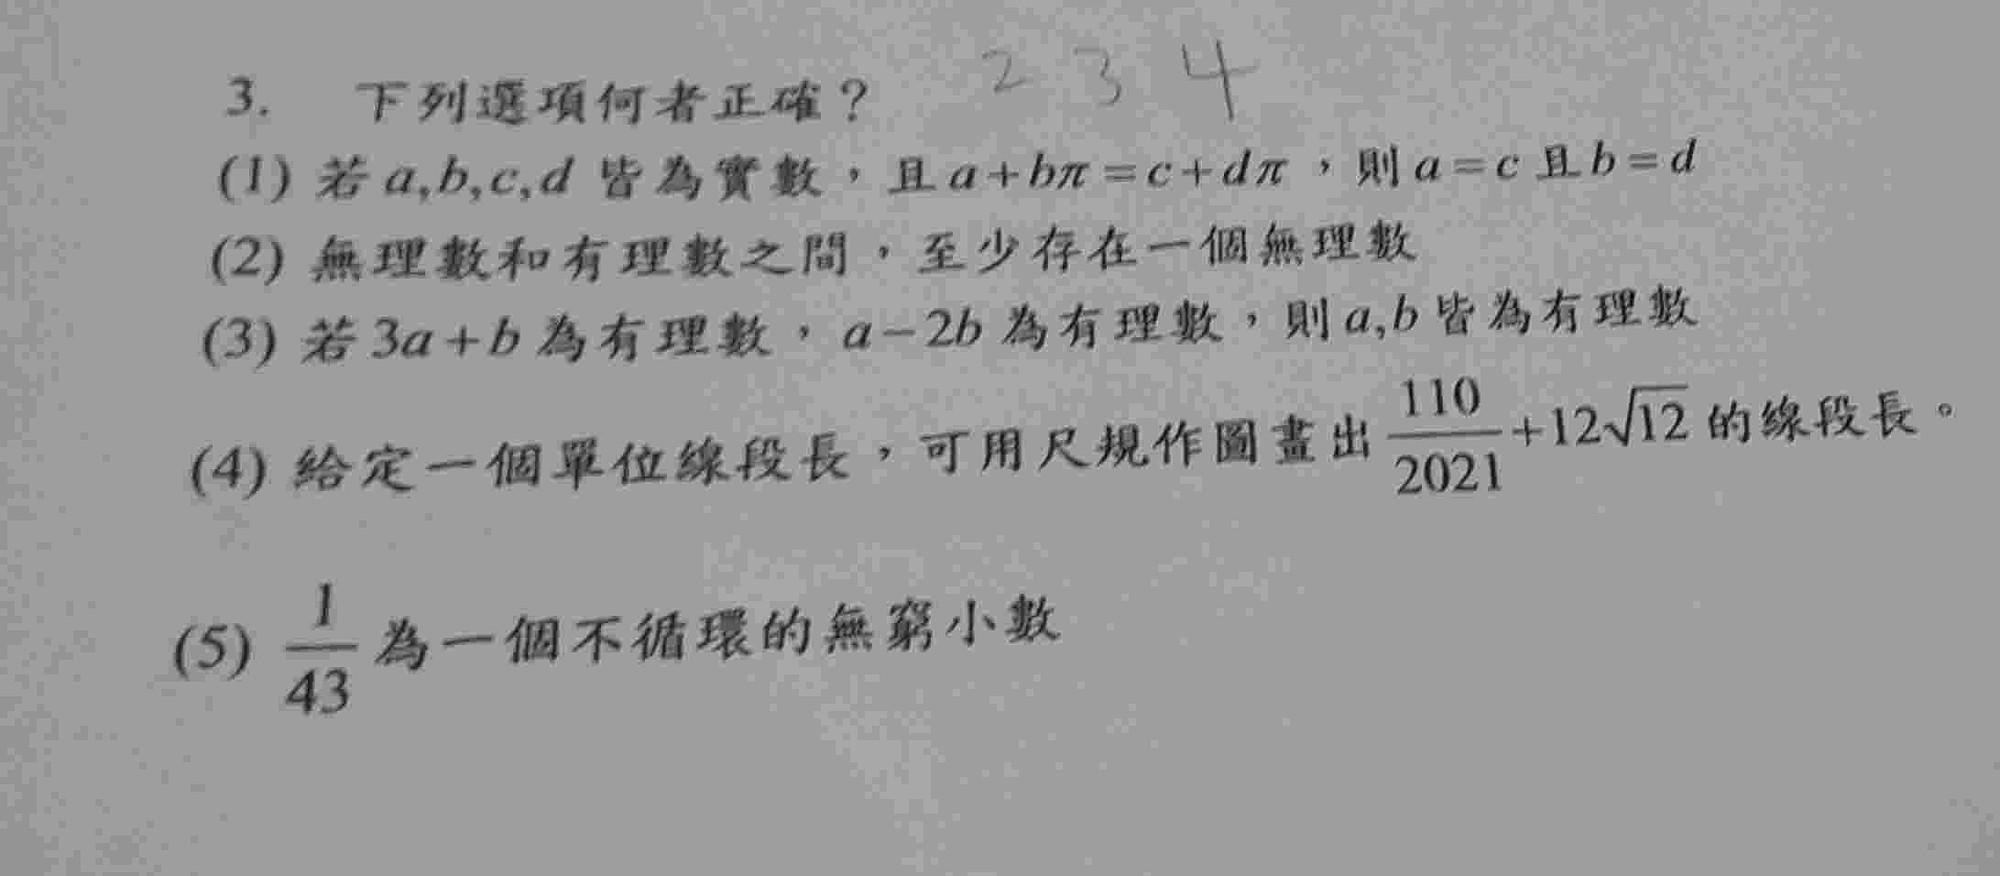 2 3 4
3. 下列選項何者正確？
(1) 若 a,b,c,d 皆為實數，且 a+bπ=c+dπ，則 a=c 且 b=d
(2) 無理數和有理數之間，至少存在一個無理數
(3) 若 3a+b 為有理數，a−2b 為有理數，則 a,b 皆為有理數
(4) 給定一個單位線段長，可用尺規作圖畫出 110/2021+12√12 的線段長。
(5) 1/43 為一個不循環的無窮小數